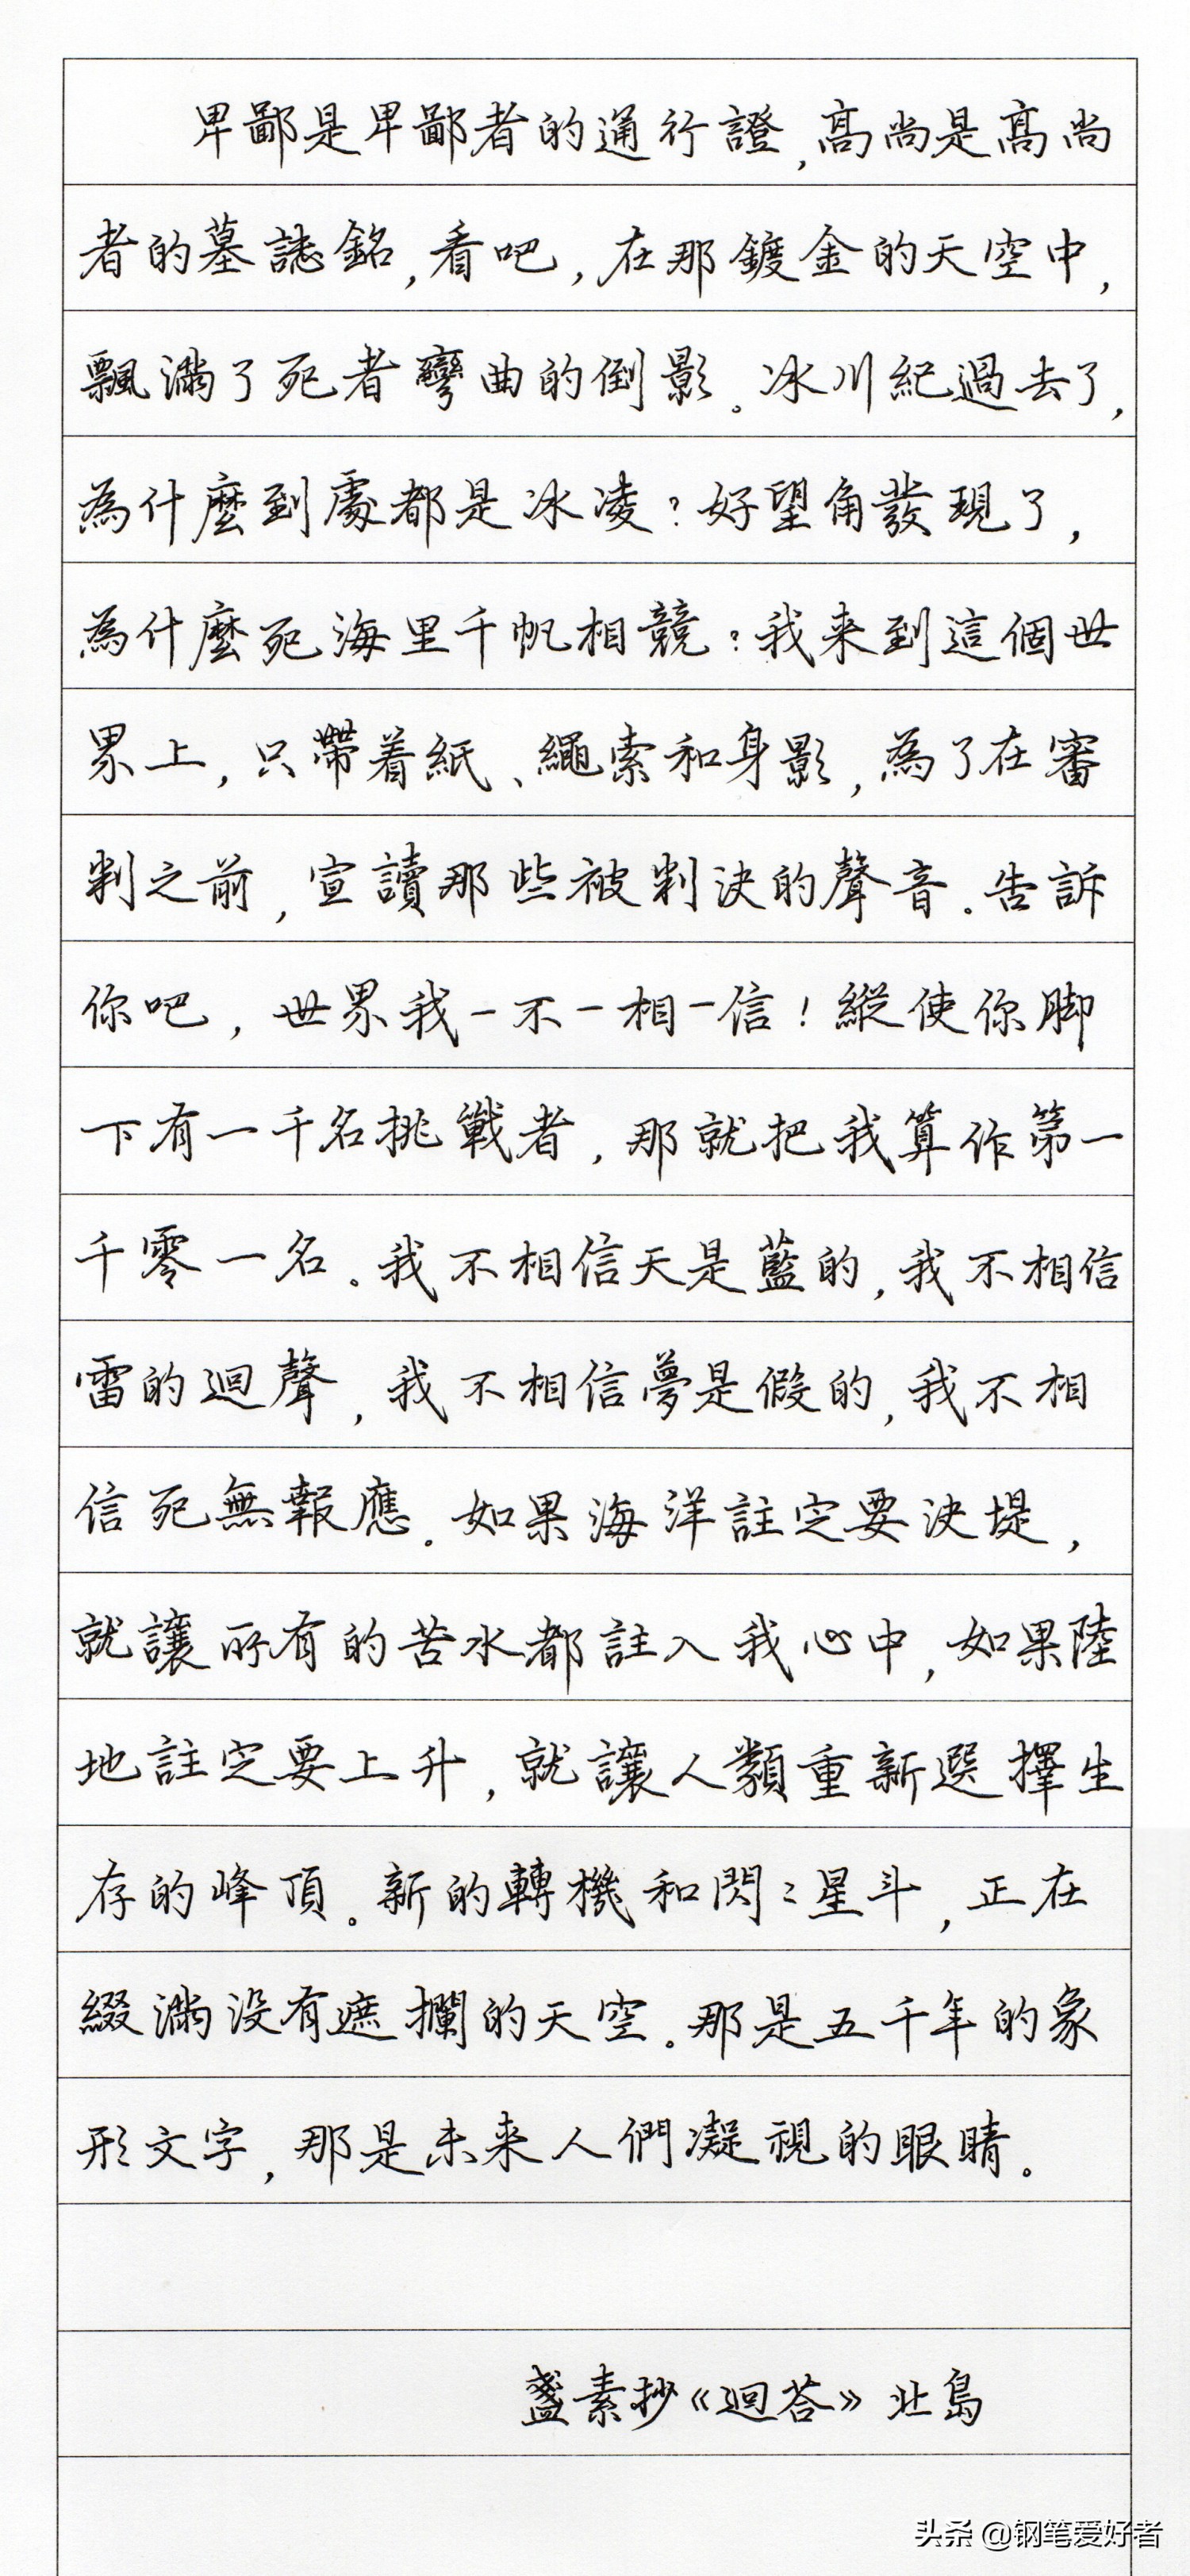 卑鄙是卑鄙者的通行證,高尚是高尚
者的墓誌銘,看吧,在那鍍金的天空中,
飄滿了死者彎曲的倒影。冰川紀過去了,
為什麼到處都是冰凌?好望角發現了,
為什麼死海里千帆相競?我来到這個世
界上,只帶着紙、繩索和身影,為了在審
判之前,宣讀那些被判決的聲音。告訴
你吧,世界我一不一相一信!縱使你脚
下有一千名挑戰者,那就把我算作第一
千零一名。我不相信天是藍的,我不相信
雷的迴聲,我不相信夢是假的,我不相
信死無報應。如果海洋註定要決堤,
就讓所有的苦水都註入我心中,如果陸
地註定要上升,就讓人類重新選擇生
存的峰頂。新的轉機和閃々星斗,正在
綴滿没有遮攔的天空。那是五千年的象
形文字,那是未来人們凝視的眼睛。
盞素抄《迴答》北島
头条 @钢笔爱好者